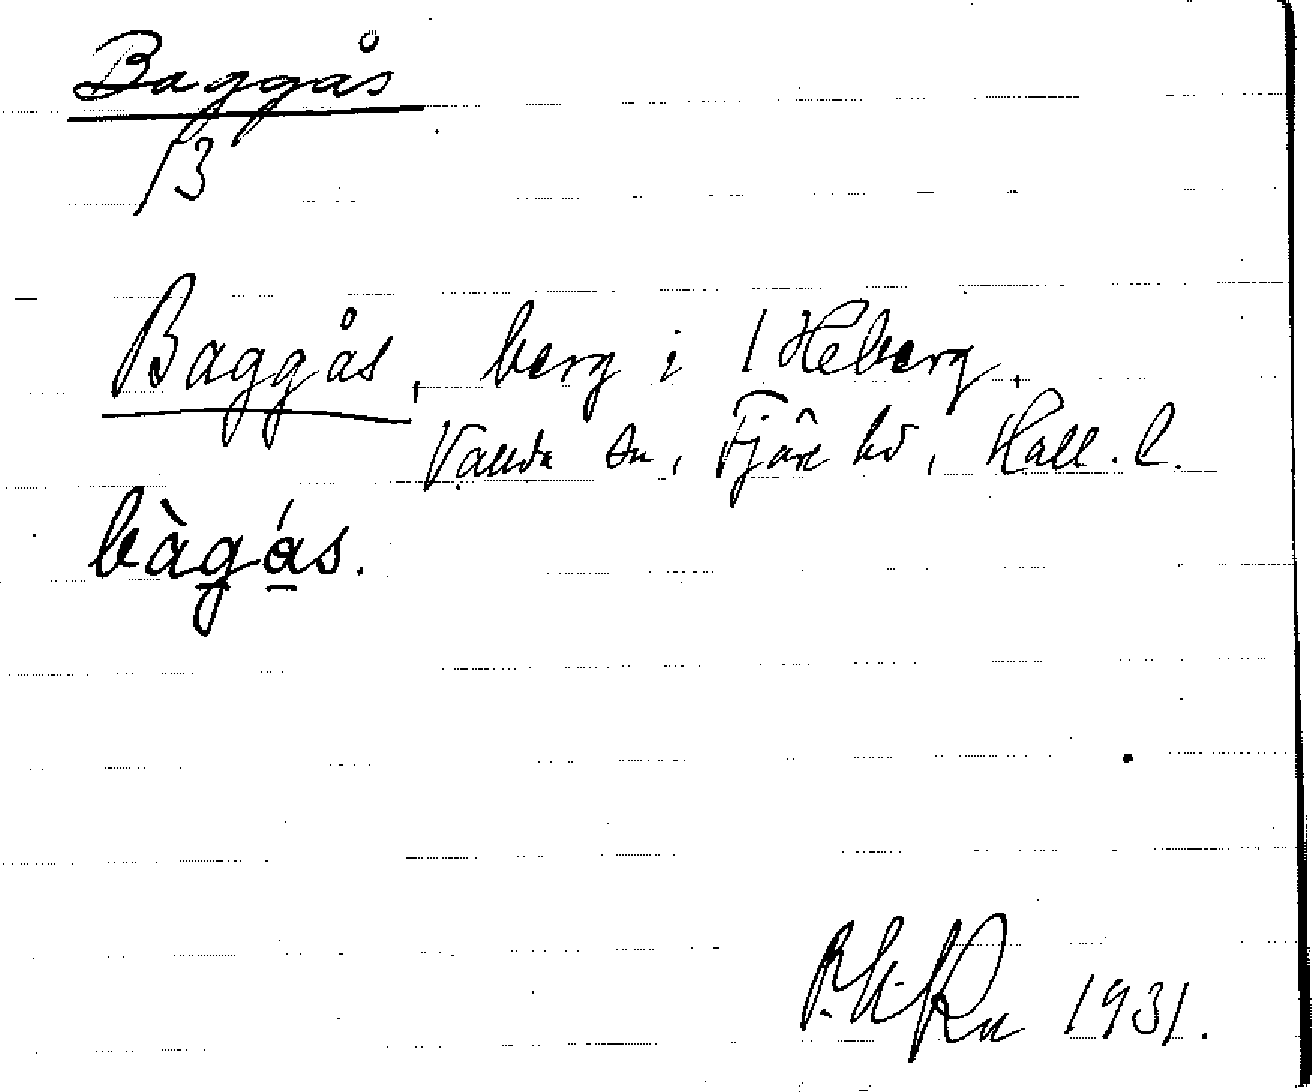 Baggås
/3
Baggås, berg i 1 Heberg,
Vallda sn, Fjäre hd, Hall. l.
bàgás.
1931.